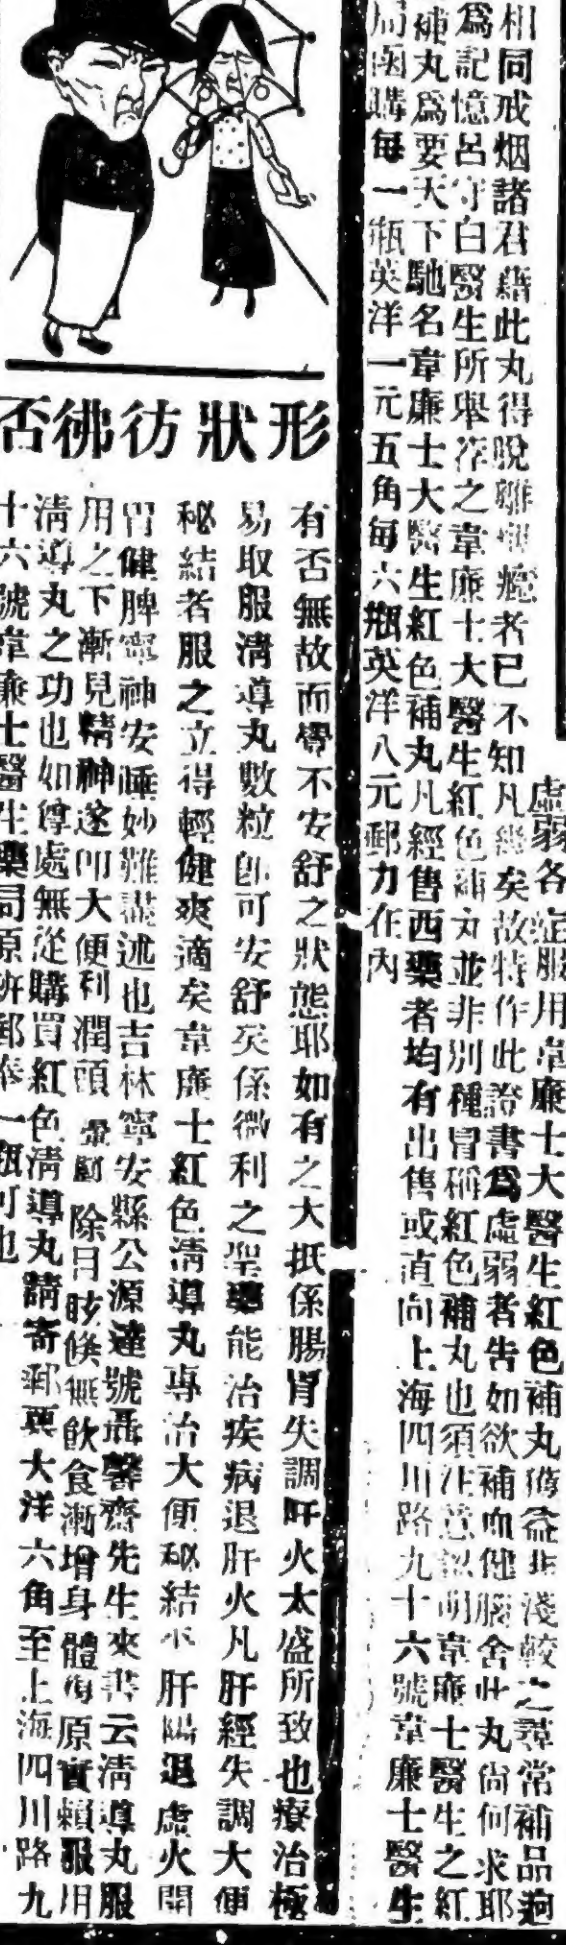 虛弱各症服用韋廉士大醫生紅色補丸獲益非淺較之尋常補品迥
相同戒烟諸君藉此丸得脫離烟癮者已不知凡幾矣故特作此證書爲虛弱者告如欲補血健腦舍此丸尙何求耶
爲記憶呂守白醫生所舉荐之韋廉士大醫生紅色補丸並非別種冒稱紅色補丸也須注意認明韋廉士醫生之紅
補丸爲要天下馳名韋廉士大醫生紅色補丸凡經售西藥者均有出售或直向上海四川路九十六號韋廉士醫生
局函購每一瓶英洋一元五角每六瓶英洋八元郵力在內
形狀彷彿否
有否無故而覺不安舒之狀態耶如有之大抵係腸胃失調肝火太盛所致也療治極
易取服淸導丸數粒卽可安舒矣係微利之聖藥能治疾病退肝火凡肝經失調大便
秘結者服之立得輕健爽適矣韋廉士紅色淸導丸專治大便秘結平肝陽退虛火開
胃健脾寧神安睡妙難盡述也吉林寧安縣公源達號聶馨齋先生來書云淸導丸服
用之下漸見精神遂叩大便利潤頭 除目眩倏無飲食漸增身體復原實賴服用
淸導丸之功也如傳處無從購買紅色淸導丸請寄郵票大洋六角至上海四川路九
十六號韋廉士醫生藥局原班郵奉一瓶可也